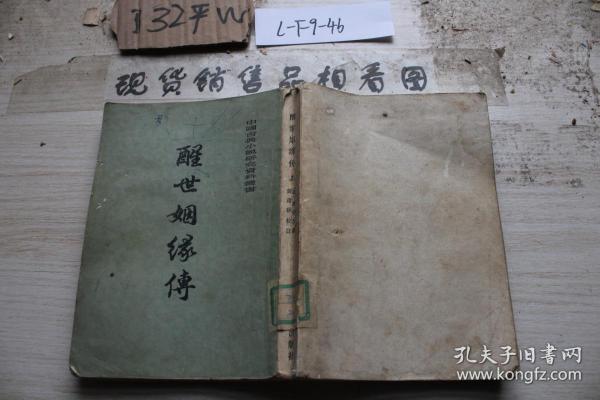 132平W
L-F-9-46
现货销售品相看图
中國古典小說研究資料叢書
醒世姻緣傳
醒世姻緣傳 上
孔夫子旧书网
www.kongfz.com